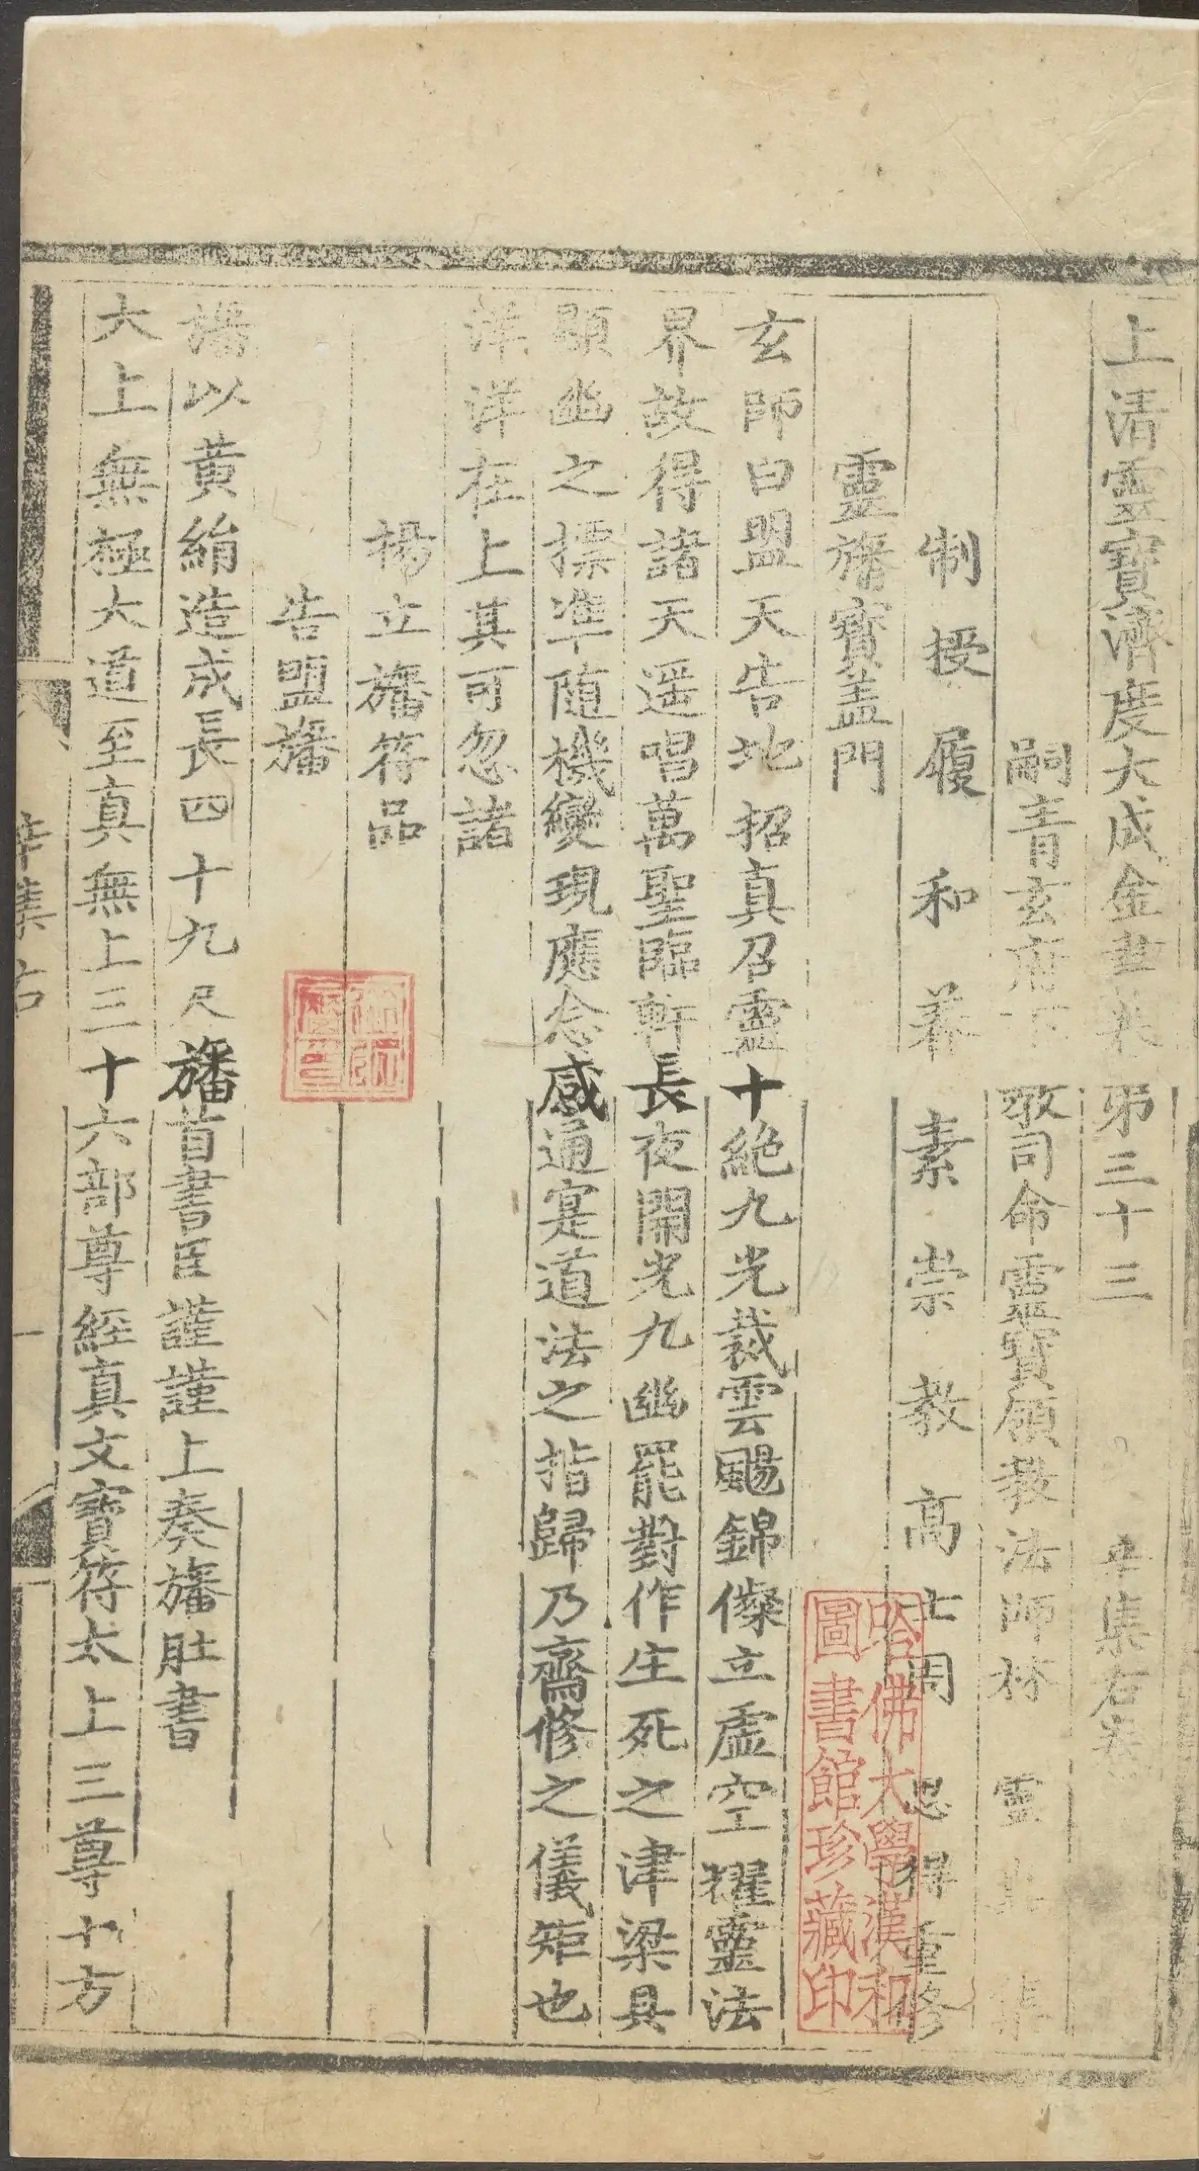 上清靈寶濟度大成金書卷 第三十三 辛集右卷
嗣青玄府下 敎司命靈寶領教法師林 靈 真 集
制授履和養素崇教高士周 思得重修
靈旛寶蓋門
玄師白盟天告地招真召靈十絶九光裁雲颺錦儏立虛空耀靈法
界故得諸天遥唱萬聖臨軒長夜開光九幽罷對作庄死之津梁具
顯幽之摽準随機變現應念感通寔道法之指歸乃齋修之儀矩也
洋洋在上其可忽諸
楊立旛符品
告盟旛
旛以黄絹造成長四十九尺旛首書臣謹謹上奏旛肚書
大上無極大道至真無上三十六部尊經真文寶符太上三尊十方
辛集右
一
哈佛大學漢和
圖書館珍藏印